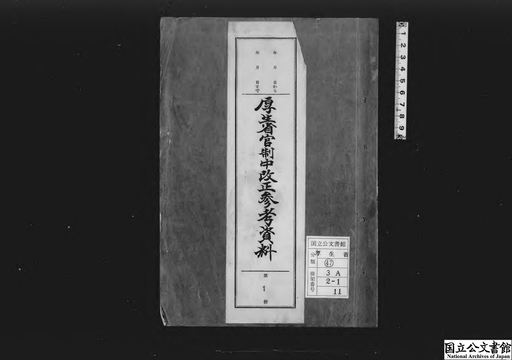 厚生省官制中改正参考資料
第
1
冊
国立公文書館
分類
厚生省
㊶
排架番号
3 A
2-1
11
1 2 3 4 5 6 7 8 9
国立公文書館
National Archives of Japan